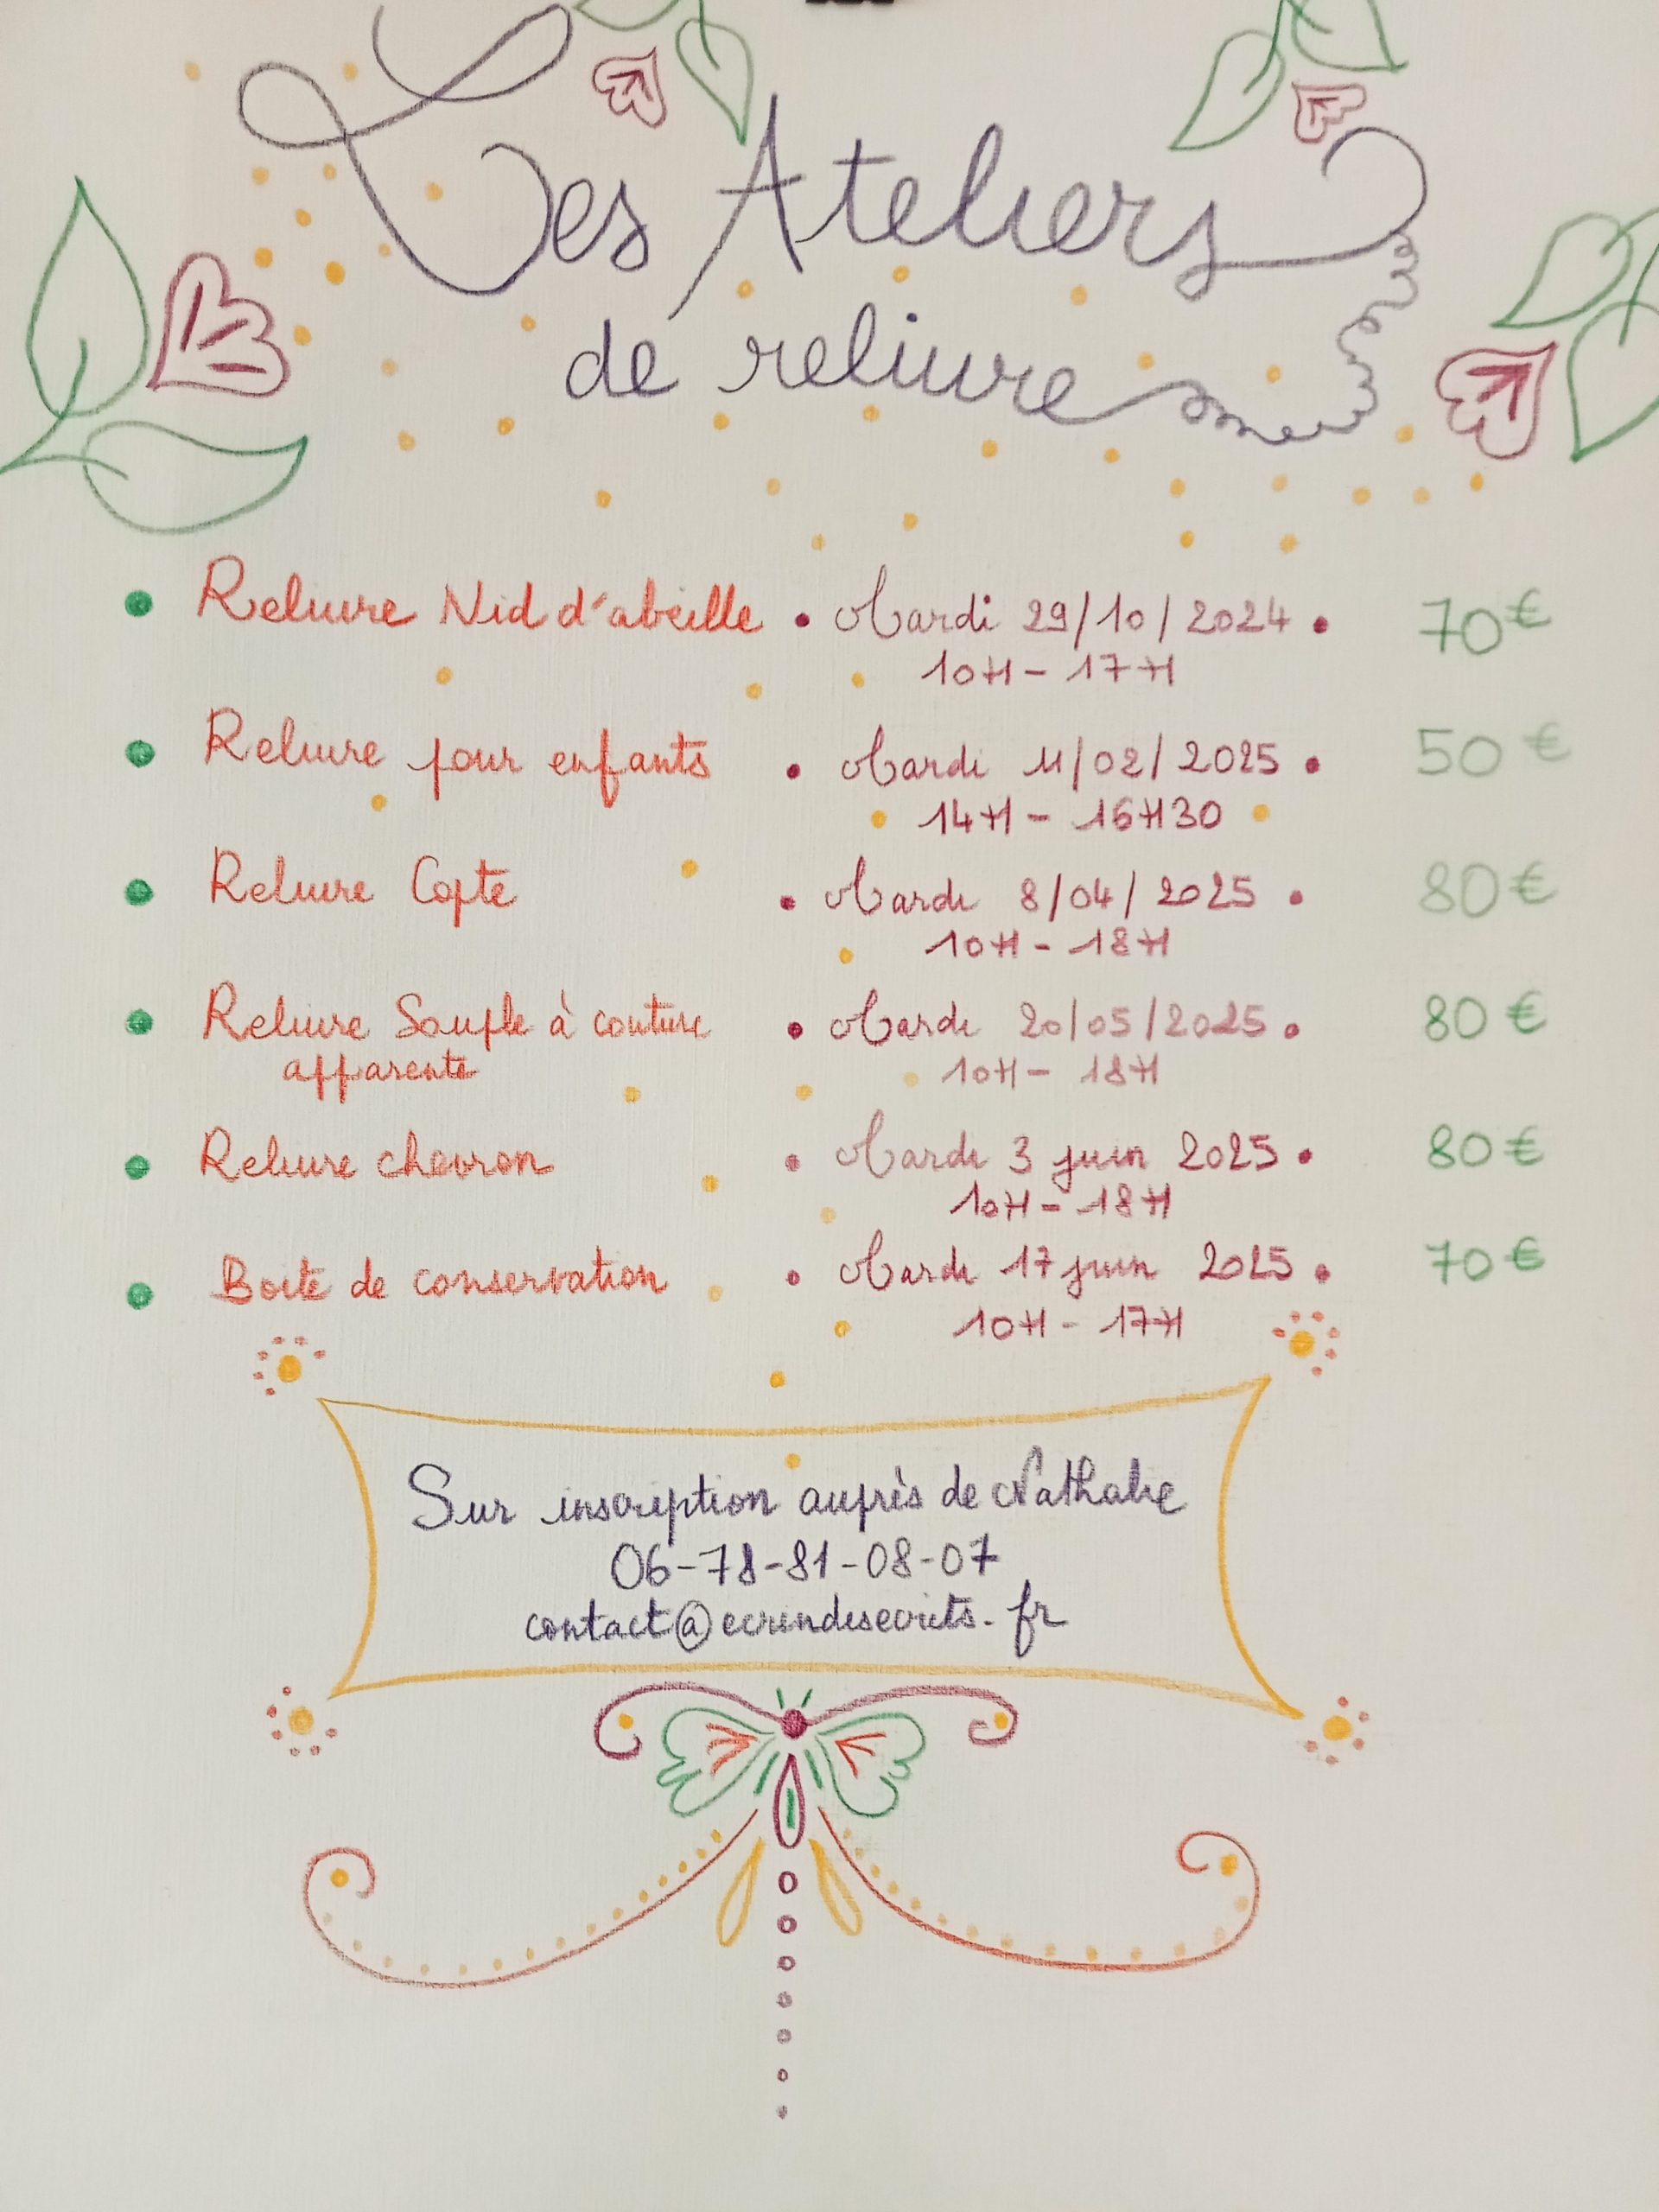 Les Ateliers
de reliure
Reliure Nid d'abeille • Mardi 29/10/2024 • 70€
10H - 17H
Reliure pour enfants • Mardi 11/02/2025 • 50€
14H - 16H30
Reliure Copte • Mardi 8/04/2025 • 80€
10H - 18H
Reliure Souple à couture • Mardi 20/05/2025 • 80€
apparente 10H - 18H
Reliure chevron • Mardi 3 juin 2025 • 80€
10H - 18H
Boite de conservation • Mardi 17 juin 2025 • 70€
10H - 17H
Sur inscription auprès de Nathalie
06-78-81-08-07
contact@ecrindesecrits.fr